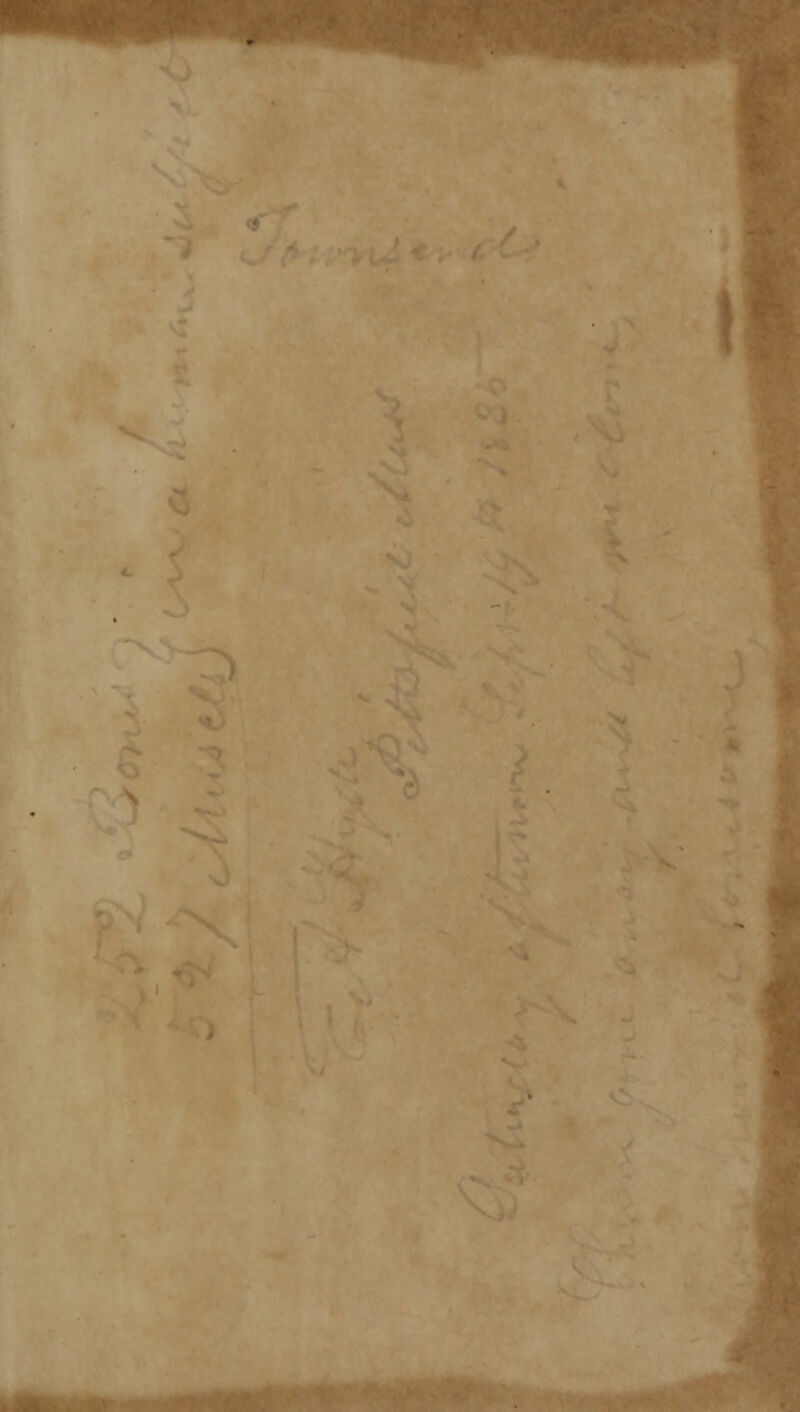 252 Bones } in a human subject
527 Muscles
Townsend
Hyde
Pittsfield Mass
Saturday afternoon Sept 19 1835
Chum gone away and left me alone,
and lonesome,